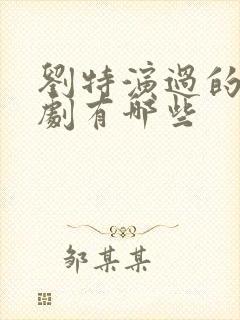 劉特演過的
劇有哪些
邹某某